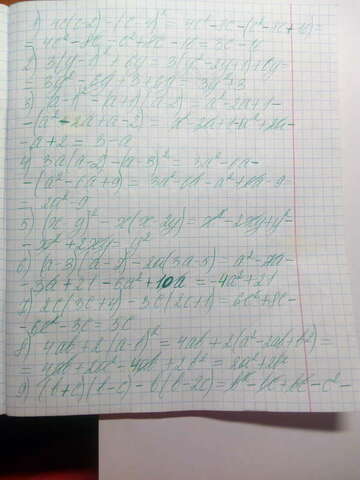 1) 4c(c-2)-(c-4)² = 4c²-8c-(c²-8c+16)=
= 4c²-8c-c²+8c-16=3c²-16
2) 3(y-1)²+6y = 3(y²-2y+1)+6y=
= 3y²-6y+3+6y = 3y²+3
3) (a-1)²-(a+1)(a-2) = a²-2a+1-
-(a²-2a+a-2) = a²-2a+1-a²+2a-
-a+2 = 3-a
4) 3a(a-2)-(a-3)² = 3a²-6a-
-(a²-6a+9) = 3a²-6a-a²+6a-9=
= 2a²-9
5) (x-y)²-x(x-2y) = x²-2xy+y²-
-x²+2xy = y²
6) (a-3)(a-7)-2a(3a-5) = a²-7a-
-3a+21-6a²+10a = -4a²+21
7) 2c(3c+4)-3c(2c+1) = 6c²+8c-
-6c²-3c = 5c
8) 4ab+2(a-b)² = 4ab+2(a²-2ab+b²)=
= 4ab+2a²-4ab+2b² = 2a²+2b²
9) (b+c)(b-c)-b(b-2c) = b²-bc+bc-c²-